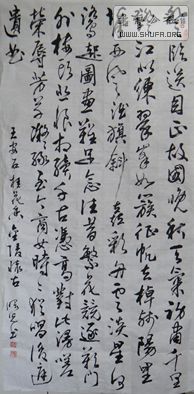 SHUFR.ORG
登临送目正故国晚秋天气初肃千里
澄江似练翠峰如簇征帆去棹残阳里
背西风酒旗斜矗彩舟云淡星河
鹭起图画难足念往昔繁华竞逐叹门
外楼头悲恨相续千古凭高对此漫嗟
荣辱芳草凝绿至今商女时时犹唱后庭
遗曲 王安石桂枝香金陵怀古